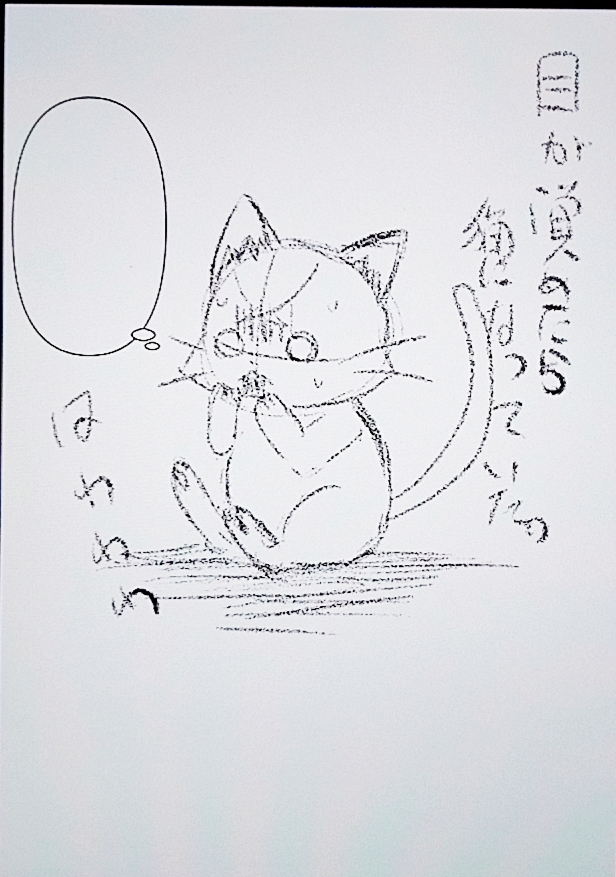 目が覚めたら
猫になっていた
はわわわ